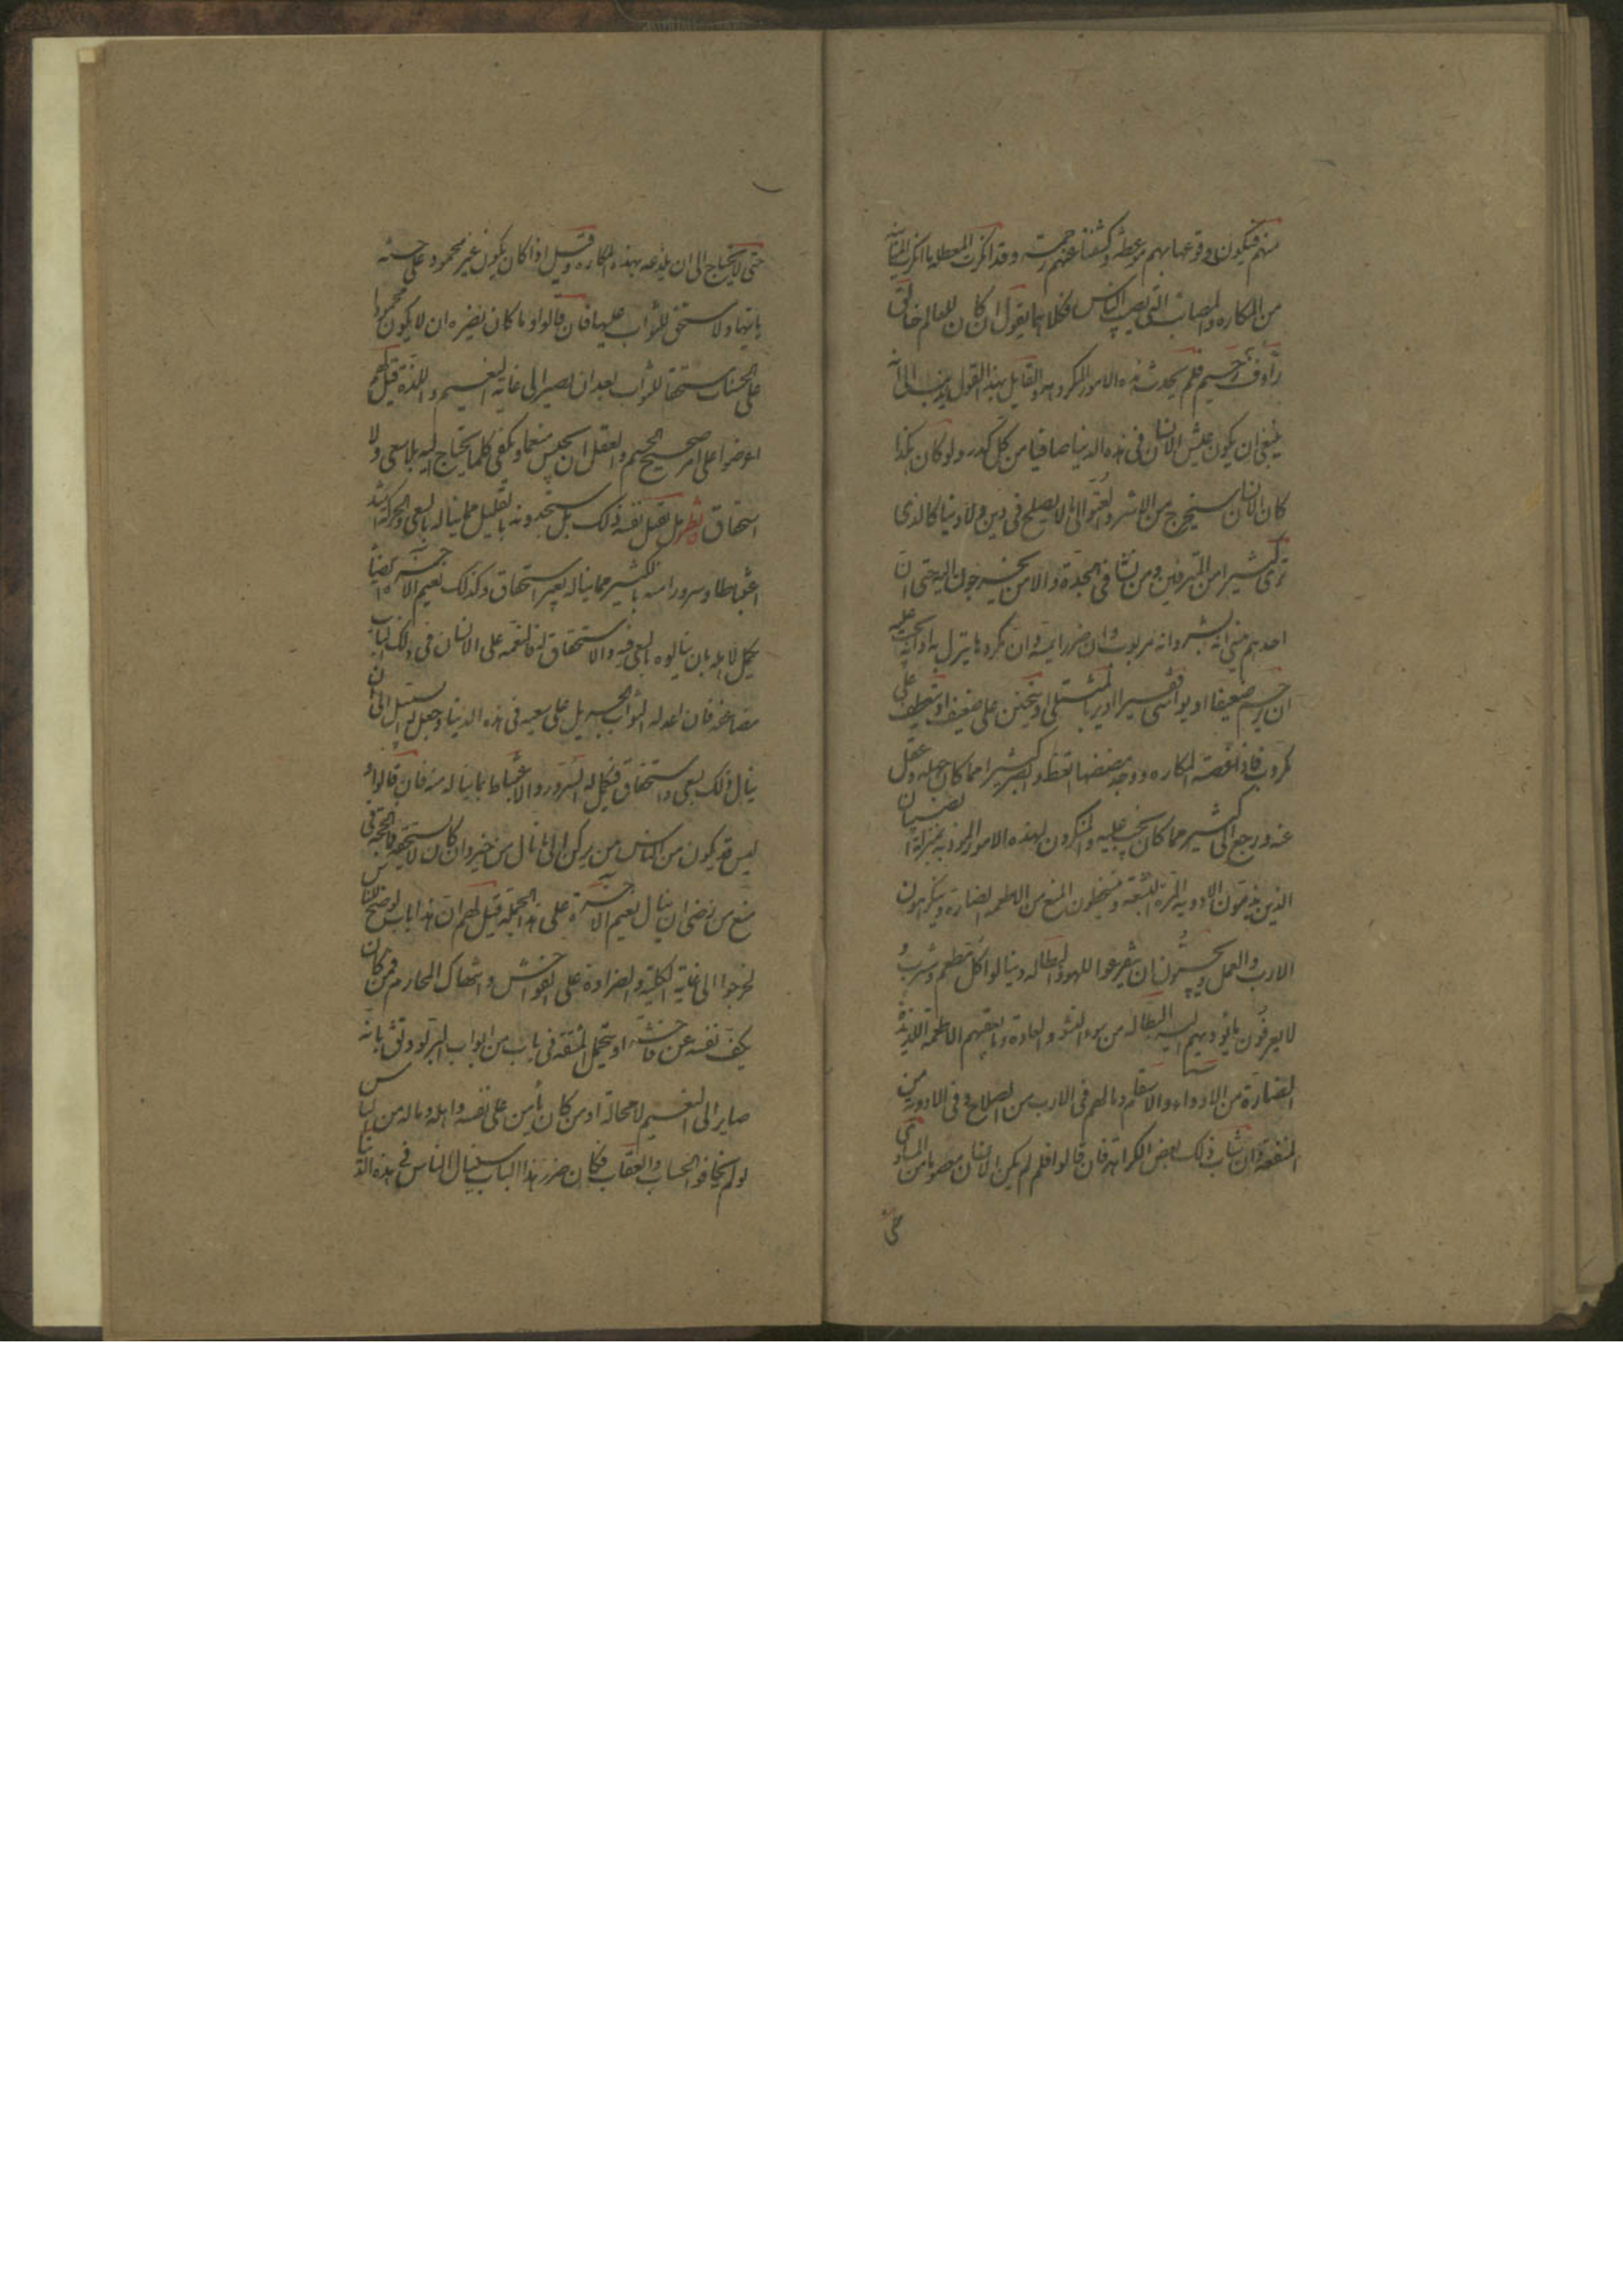 منهم فيكون وقوعها بهم موعظة وكشفنا عنهم رحمة وقد انكرت المعطلة ما انكرت المنانية
من المكاره والمصائب التي تصيب الناس فكلاهما يقول ان كان للعالم خالق
رؤف رحيم فلم يحدث هذه الامور المكروهه والقايل بهذا القول يذهب الى انه
ينبغي ان يكون عيش الانسان في هذه الدنيا صافيا من كل كدر ولو كان هكذا
كان الانسان سيخرج من الاشر والعتو الى ما لا يصلح في دين ولا دنيا كالذي
ترى كثيرا من المترفين ومن نشا في الجدة والامن يخرجون اليه حتى ان
احدهم ينسى انه بشر وانه مربوب وان ضررا يمسه وان مكروها ينزل به او انه يجب عليه
ان يرحم ضعيفا او يواسى فقيرا او يرثى لمبتلى او يتحنن على ضعيف او يتعطف على
مكروب فاذا عضته المكاره ووجد مضضها اتعظ وابصر كثيرا مما كان جهله وغفل
عنه ورجع الى كثير مما كان يجب عليه والمنكرون لهذه الامور الموذية بمنزلة الصبيان
الذين يذمون الادوية المرة البشعة ويتسخطون المنع من الاطعمة الضارة ويتكرهون
الادب والعمل ويحبون ان يتفرغوا للهو والبطاله وينالوا كل مطعم ومشرب
لا يعرفون ما يؤديهم اليه البطالة من سوء النشو والعادة وما يعقبهم الاطعمة اللذيذة
الضارة من الادواء والاسقام وما لهم في الادب من الصلاح وفي الادوية من
المنفعة وان شاب ذلك بعض الكراهة فان قالوا فلم لم يكن الانسان معصوما من المساوى
حتى
حتى لا يحتاج الى ان يلذعه بهذه المكاره وقيل اذا كان يكون غير محمود على حسنة
ياتيها ولا مستحق للثواب عليها فان قالوا وما كان يضره ان لا يكون محمودا
على الحسنات مستحقا للثواب بعد ان يصير الى غاية النعيم واللذة قيل لهم
اعرضوا على امرء صحيح الجسم والعقل ان يجلس منعما ويكفى كلما يحتاج اليه بلا سعي ولا
استحقاق فانظر هل تقبل نفسه ذلك بل ستجدونه بالقليل مما يناله بالسعي والحركة اشد
اغتباطا وسرورا منه بالكثير مما يناله بغير استحقاق وكذلك نعيم الاخرة ايضا
يكمل لاهله بان ينالوه بالسعي فيه والاستحقاق له فالنعمة على الانسان في ذلك الباب
مضاعفة فان اعد له الثواب الجزيل على سعيه في هذه الدنيا وجعل له السبيل الى ان
ينال ذلك بسعي واستحقاق فيكمل له السرور والاغتباط بما يناله منه فان قالوا او
ليس قد يكون من الناس من يركن الى ما نال من خير وان كان لا يستحقه فما الحجة في
منع من رضى ان ينال نعيم الاخرة على هذه الجملة قيل لهم ان هذا باب لو صح للناس
لخرجوا الى غاية الكلب والضراوة على الفواحش وانتهاك المحارم فمن كان
يكف نفسه عن فاحشة او يتحمل المشقة في باب من ابواب البر لو وثق بانه
صاير الى النعيم لا محالة او من كان يأمن على نفسه واهله وماله من الناس
لو لم يخافوا الحساب والعقاب فكان ضرر هذا الباب سينال الناس في هذه الدنيا